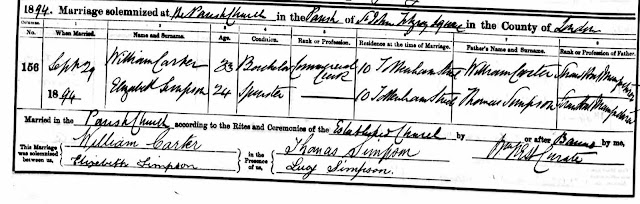 1894. Marriage solemnized at the Parish Church in the Parish of St John Fitzroy Square in the County of London
No. When Married. Name and Surname. Age. Condition. Rank or Profession. Residence at the time of Marriage. Father's Name and Surname. Rank or Profession of Father.
156 Sept 29 William Carter 23 Bachelor Commercial Clerk 10 Tottenham Street William Carter
1894 Elizabeth Simpson 24 Spinster 10 Tottenham Street Thomas Simpson
Married in the Parish Church according to the Rites and Ceremonies of the Established Church by or after Banns by me,
This Marriage was solemnized between us, William Carter Elizabeth Simpson in the Presence of us, Thomas Simpson Lucy Simpson. Curate